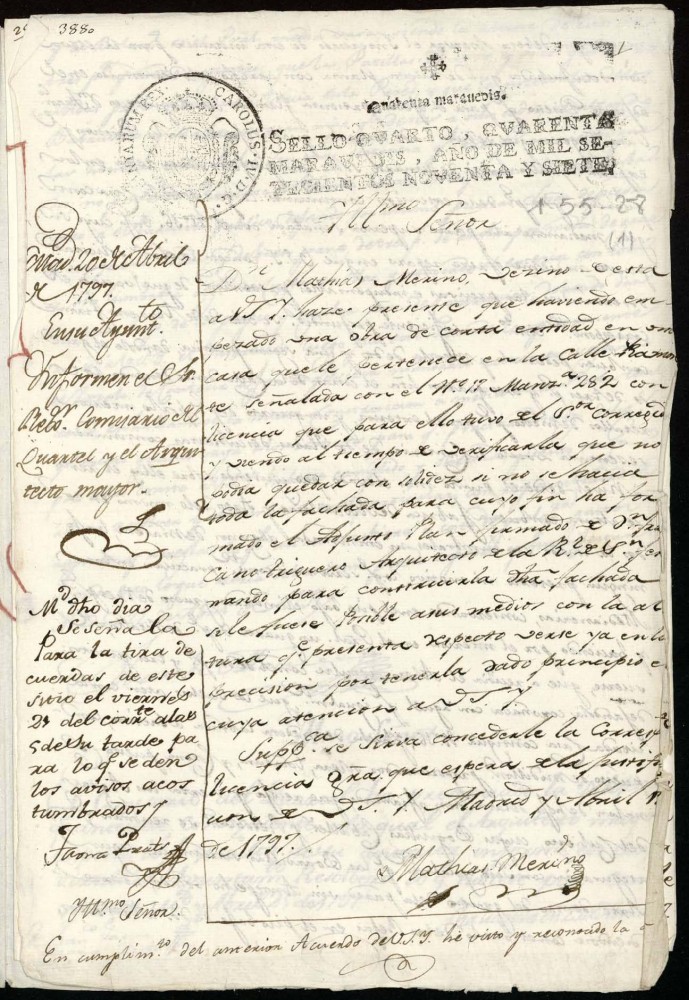 3880
Quarenta maravedis.
SELLO QVARTO, QVARENTA
MARAVEDIS, AÑO DE MIL SE-
TECIENTOS NOVENTA Y SIETE,
CAROLUS IV D. G.
1-55-28
(1)
Yllmo
Señor
Mad. 20 de Abril
de 1797.
En su Ayuntto
Ynformen el Sr
Rexor Comisario del
Quartel y el Arqui
tecto mayor.
Md dho dia
Se señala
Para la tira de
cuerdas de este
sitio el viernes
21 del corrte alas
5 de su tarde pa
ra lo q se den
los avisos acos
tumbrados
Yllmo Señor.
Dn Mathias Merino, vezino de esta
a V.S.Y. haze presente que haviendo em-
pezado una obra de corta entidad en una
casa que le pertenece en la Calle
te señalada con el No 17 Manza 282 con
licencia que para ello tuvo del Sor Correxi
y viendo al tiempo de verificarla que no
podia quedar con solidez si no se hacia
toda la fachada para cuyo fin ha for
mado el Adjunto Plan firmado de Dn
cano Triguero Arquitecto de la Rl de Sn
nando para construirla dha fachada
si le fuese Posible a sus medios con la al
tura qe presenta respecto verse ya en la
precision por tenerla dado principio en
cuya atencion a V.S.Y.
Suppca se sirva concederle la Corresp
licencia gra que espera de la justifi
cion de V.S.Y. Madrid y Abril
de 1797.
Mathias Merino
En cumplimto del anterior Acuerdo de V.S.Y. hè visto y reconocido la